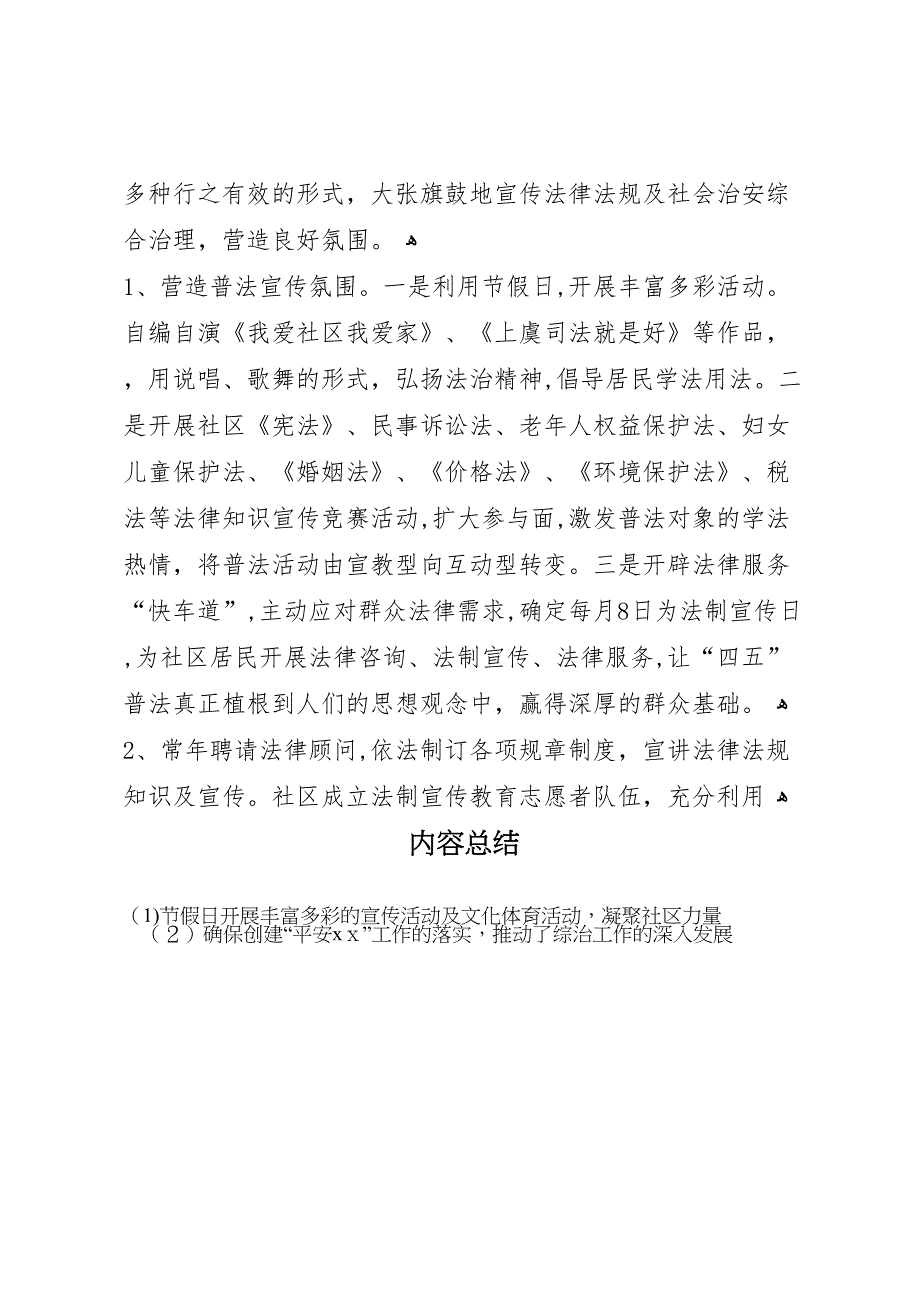 多种行之有效的形式，大张旗鼓地宣传法律法规及社会治安综
合治理，营造良好氛围。 ﻫ
1、营造普法宣传氛围。一是利用节假日,开展丰富多彩活动。
自编自演《我爱社区我爱家》、《上虞司法就是好》等作品，
，用说唱、歌舞的形式，弘扬法治精神,倡导居民学法用法。二
是开展社区《宪法》、民事诉讼法、老年人权益保护法、妇女
儿童保护法、《婚姻法》、《价格法》、《环境保护法》、税
法等法律知识宣传竞赛活动,扩大参与面,激发普法对象的学法
热情，将普法活动由宣教型向互动型转变。三是开辟法律服务
“快车道”,主动应对群众法律需求,确定每月8日为法制宣传日
,为社区居民开展法律咨询、法制宣传、法律服务,让“四五”
普法真正植根到人们的思想观念中，赢得深厚的群众基础。 ﻫ
2、常年聘请法律顾问,依法制订各项规章制度，宣讲法律法规
知识及宣传。社区成立法制宣传教育志愿者队伍，充分利用 ﻫ
内容总结
（1)节假日开展丰富多彩的宣传活动及文化体育活动，凝聚社区力量
（２）确保创建“平安xｘ”工作的落实，推动了综治工作的深入发展